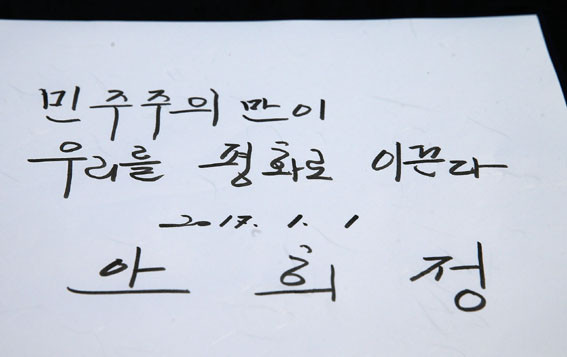 민주주의만이
우리를 평화로 이끈다
2017. 1. 1
안 희 정